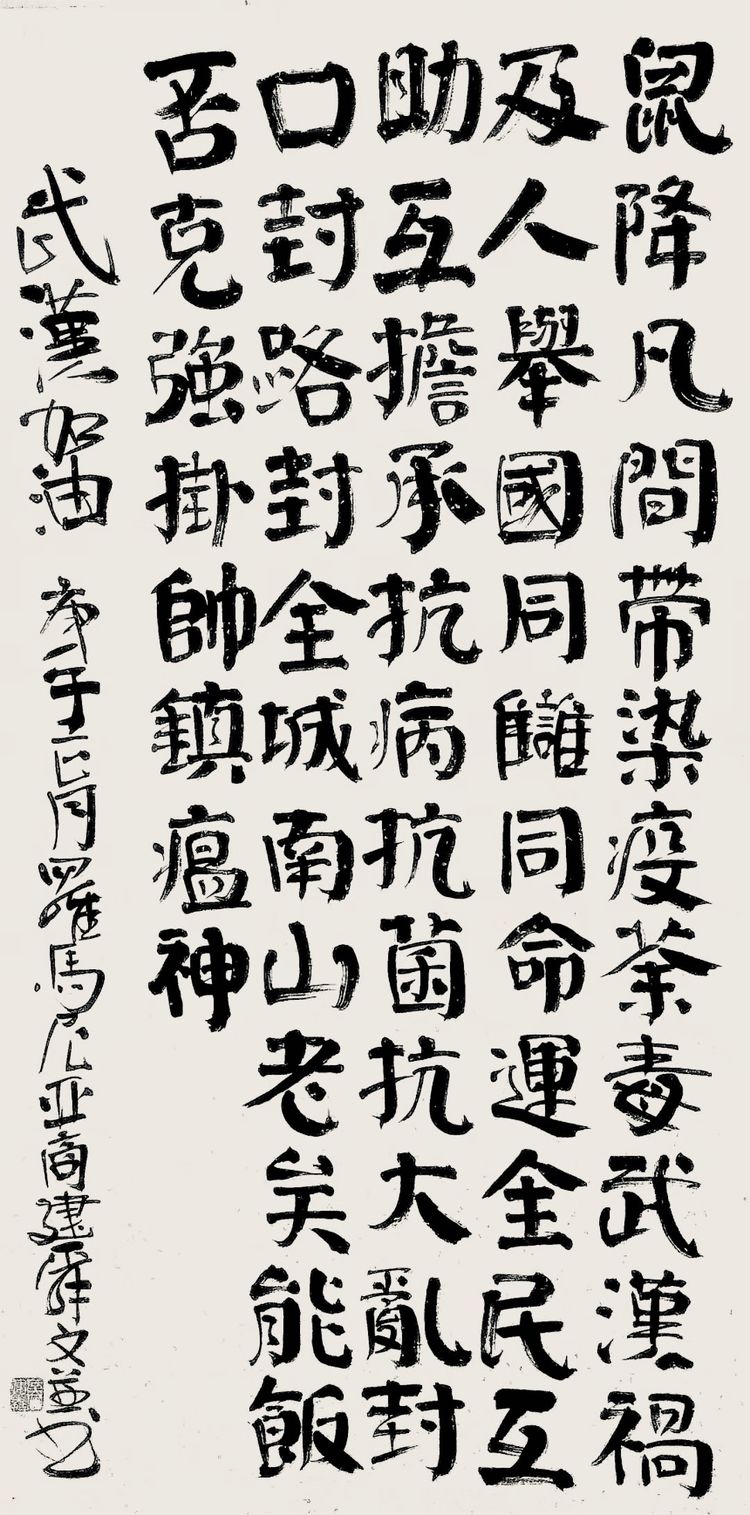 鼠降凡間帶染疫荼毒武漢禍
及人舉國同讎同命運全民互
助互擔承抗病抗菌抗大亂封
口封路封全城南山老矣能飯
否克強掛帥鎮瘟神
武漢加油 庚子正月羅馬尼亞商建舜文並书